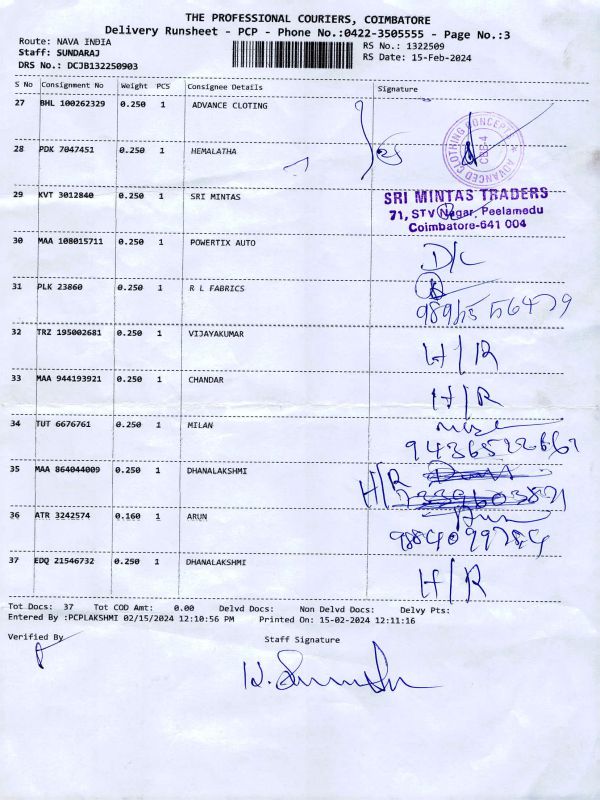 THE PROFESSIONAL COURIERS, COIMBATORE
Delivery Runsheet - PCP - Phone No.:0422-3505555 - Page No.:3
Route: NAVA INDIA
RS No.: 1322509
Staff: SUNDARAJ
RS Date: 15-Feb-2024
DRS No.: DCJB132250903
S No Consignment No Weight PCS Consignee Details Signature
27 BHL 100262329 0.250 1 ADVANCE CLOTING
ADVANCED CLOTHING CONCEPTS
CBE-4
28 PDK 7047451 0.250 1 HEMALATHA
29 KVT 3012840 0.250 1 SRI MINTAS
SRI MINTAS TRADERS
71, STV Nagar, Peelamedu
Coimbatore-641 004
30 MAA 108015711 0.250 1 POWERTIX AUTO
D/C
31 PLK 23860 0.250 1 R L FABRICS
32 TRZ 195002681 0.250 1 VIJAYAKUMAR
H/R
33 MAA 944193921 0.250 1 CHANDAR
H/R
34 TUT 6676761 0.250 1 MILAN
35 MAA 864044009 0.250 1 DHANALAKSHMI
H/R
36 ATR 3242574 0.160 1 ARUN
37 EDQ 21546732 0.250 1 DHANALAKSHMI
H/R
Tot Docs: 37 Tot COD Amt: 0.00 Delvd Docs: Non Delvd Docs: Delvy Pts:
Entered By :PCPLAKSHMI 02/15/2024 12:10:56 PM Printed On: 15-02-2024 12:11:16
Verified By
Staff Signature